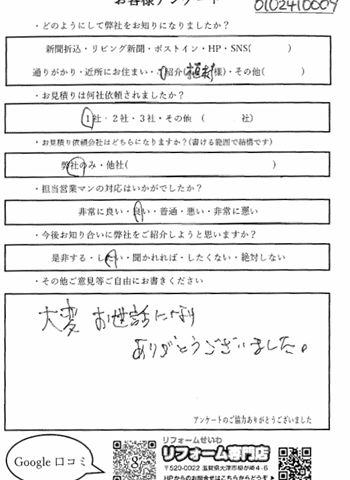 お客様アンケート
0102410009
・どのようにして弊社をお知りになりましたか?
新聞折込・リビング新聞・ポストイン・HP・SNS( )
通りがかり・近所にお住まい・ご紹介( 様)・その他( )
・お見積りは何社依頼されましたか?
1社・2社・3社・その他 ( 社)
・お見積り依頼会社はどちらになりますか?(書ける範囲で結構です)
弊社のみ・他社( )
・担当営業マンの対応はいかがでしたか?
非常に良い・良い・普通・悪い・非常に悪い
・今後お知り合いに弊社をご紹介しようと思いますか?
是非する・したい・聞かれれば・したくない・絶対しない
・その他ご意見等ご自由にお書きください
大変 お世話になり
ありがとうございました。
アンケートのご協力ありがとうございました
Google 口コミ
リフォームせいわ
リフォーム専門店
〒520-0022 滋賀県大津市柳が崎4-6
HPからのお問合せはこちらからどうぞ